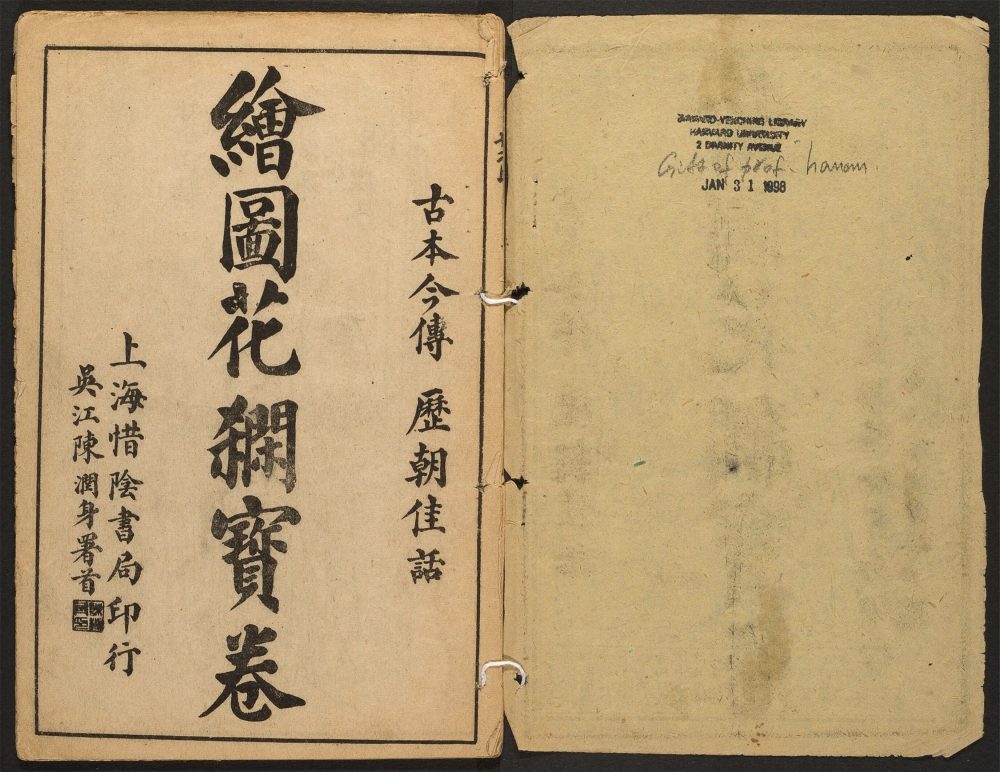 HARVARD-YENCHING LIBRARY
HARVARD UNIVERSITY
2 DIVINITY AVENUE
Gift of prof. hanan.
JAN 31 1998
古本今傳 歷朝佳話
繪圖花𤄃寶卷
上海惜陰書局印行
吳江陳潤身署首